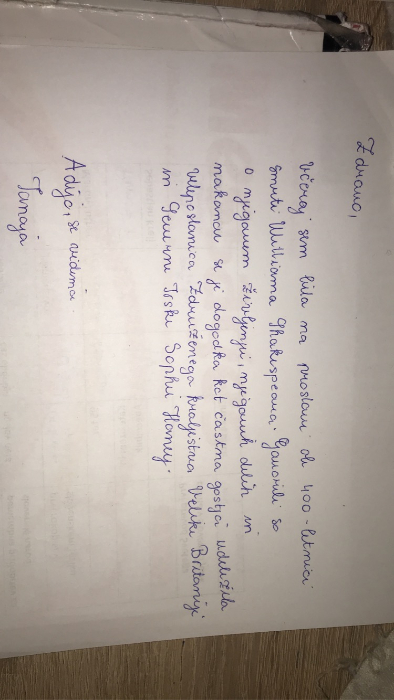 Zdravo,
včeraj sem bila na proslavi ob 400-letnici
smrti Williama Shakespeara. Govorili so
o njegovem življenju, njegovih delih in
nakonau se je dogodka kot častna gostja udeležila
veleposlanica Združenega kraljestva Velike Britanije
in Severne Irske Sophie Honey.
Adijo, se vidimo.
Tanaja